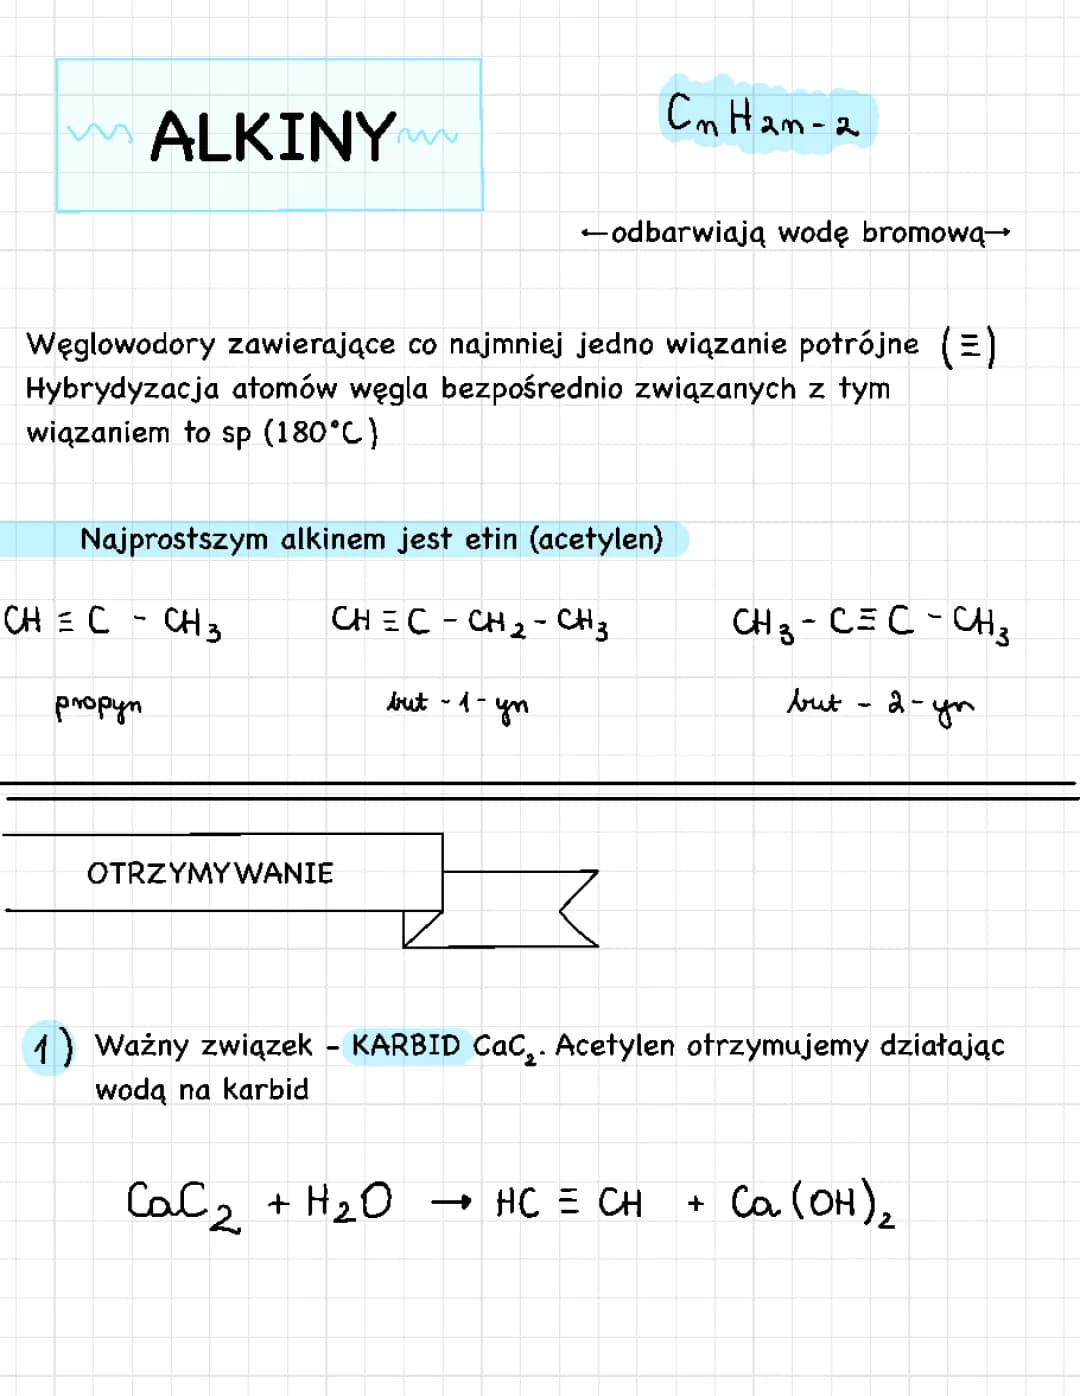 ALKINY
CnH2n-2
←odbarwiają wodę bromową→
Węglowodory zawierające co najmniej jedno wiązanie potrójne (≡)
Hybrydyzacja atomów węgla bezpośrednio związanych z tym
wiązaniem to sp (180°C)
Najprostszym alkinem jest etin (acetylen)
CH ≡ C - CH3 CH ≡ C - CH2 - CH3 CH3 - C ≡ C - CH3
propyn but - 1 - yn but - 2 - yn
OTRZYMYWANIE
1) Ważny związek - KARBID CaC2. Acetylen otrzymujemy działając
wodą na karbid
CaC2 + H2O → HC ≡ CH + Ca(OH)2